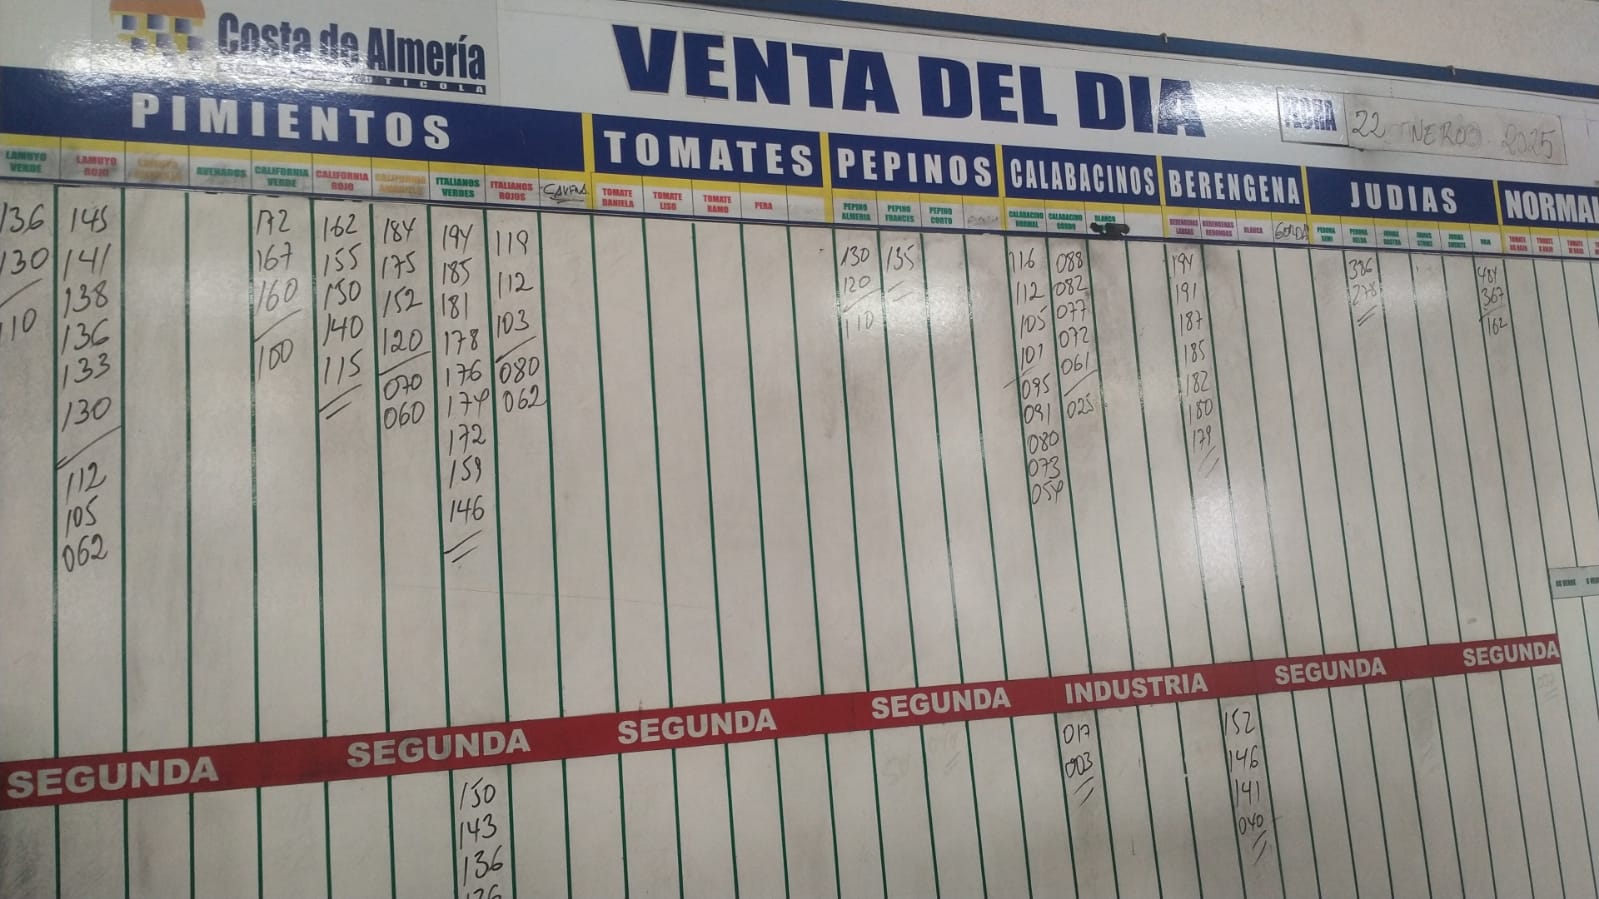 Costa de Almería
VENTA DEL DIA
22 ENERO 2025
PIMIENTOS
TOMATES
PEPINOS
CALABACINOS
BERENGENA
JUDIAS
NORMAL
LAMUYO VERDE
LAMUYO ROJO
ASURADOS
CALIFORNIA VERDE
CALIFORNIA ROJO
CALIFORNIA AMARILLO
ITALIANOS VERDES
ITALIANOS ROJOS
TOMATE DANIELA
TOMATE LISO
TOMATE RAMO
PERA
PEPINO ALMERIA
PEPINO FRANCES
PEPINO CORTO
CALABACINO NORMAL
CALABACINO GORDO
BLANCO
BERENGENAS LARGAS
BERENGENAS REDONDAS
BLANCA
GORDA
136 145 172 162 184 194 119 130 135 116 088 194 386 484
130 141 167 155 175 185 112 120 112 082 191 278 367
110 138 160 150 152 181 103 110 105 077 187 162
136 100 140 120 178 080 101 072 185
133 115 070 176 062 095 061 182
130 060 174 091 025 180
112 172 080 179
105 159 073
062 146 054
SEGUNDA SEGUNDA SEGUNDA SEGUNDA INDUSTRIA SEGUNDA SEGUNDA
150 017 152
143 003 146
136 141
040